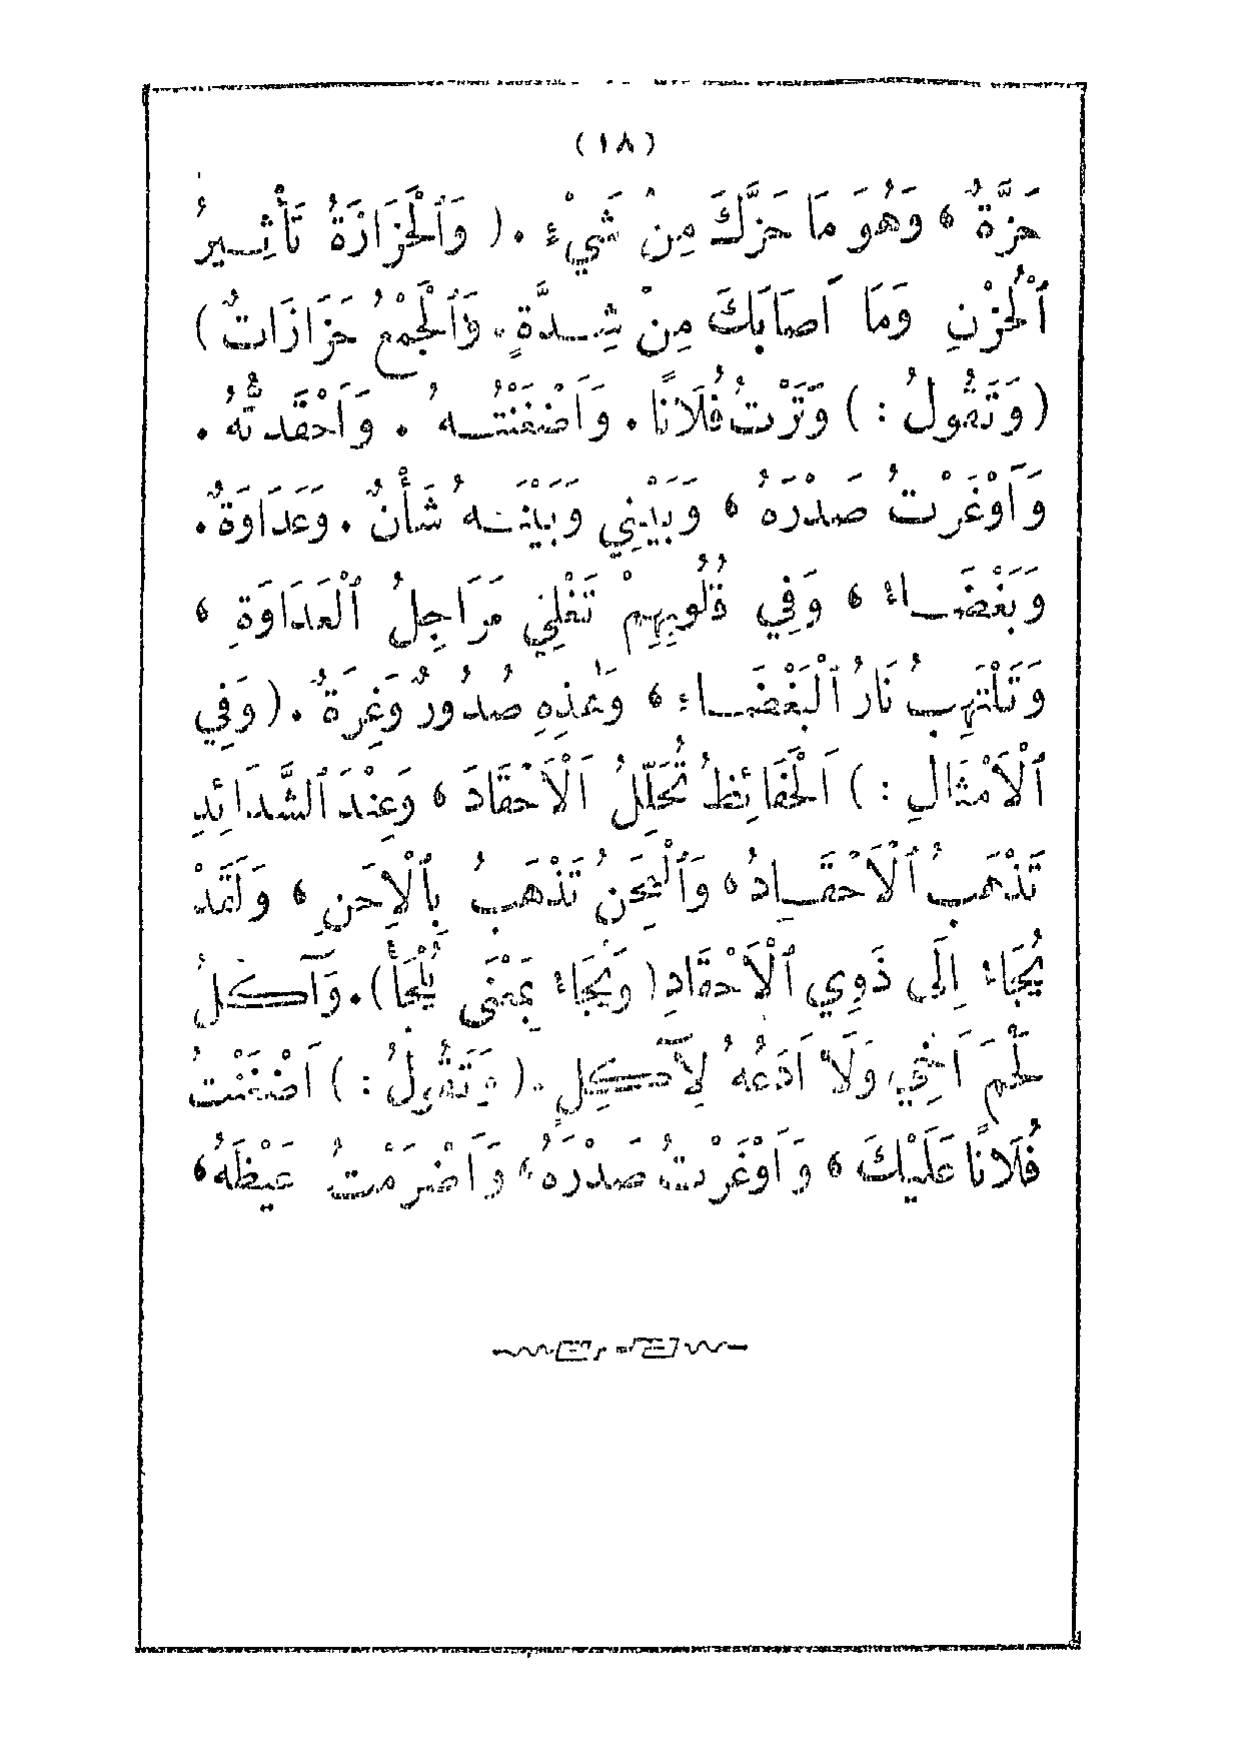 (١٨)
حَزَّةٌ، وَهُوَ مَا حَزَّكَ مِنْ شَيْءٍ. (وَٱلْحَزَازَةُ تَأْثِيرُ
ٱلْحُزْنِ وَمَا اَصَابَكَ مِنْ شِدَّةٍ. وَٱلْجَمْعُ حَزَازَاتٌ)
(وَتَقُولُ:) وَتَرْتُ فُلَانًا. وَاَضْغَنْتُهُ. وَاَحْقَدتُّهُ.
وَاَوْغَرْتُ صَدْرَهُ، وَبَيْنِي وَبَيْنَهُ شَأْنٌ. وَعَدَاوَةٌ.
وَبَغْضَاءُ، وَفِي قُلُوبِهِمْ تَغْلِي مَرَاجِلُ ٱلْعَدَاوَةِ،
وَتَلْتَهِبُ نَارُ ٱلْبَغْضَاءِ، وَهٰذِهِ صُدُورٌ وَغِرَةٌ. (وَفِي
ٱلْاَمْثَالِ:) اَلْحَفَائِظُ تُحَلِّلُ ٱلْاَحْقَادَ، وَعِنْدَ ٱلشَّدَائِدِ
تَذْهَبُ ٱلْاَحْقَادُ، وَٱلْمِحَنُ تَذْهَبُ بِٱلْاِحَنِ، وَلَقَدْ
يُجَاءُ اِلَى ذَوِي ٱلْاَحْقَادِ (وَيُجَاءُ بِمَعْنَى يُلْجَأُ). وَآكُلُ
لَحْمَ اَخِي وَلَا اَدَعُهُ لِآكِلٍ. (وَتَقُولُ:) اَضْغَنْتُ
فُلَانًا عَلَيْكَ، وَاَوْغَرْتُ صَدْرَهُ، وَاَضْرَمْتُ غَيْظَهُ،